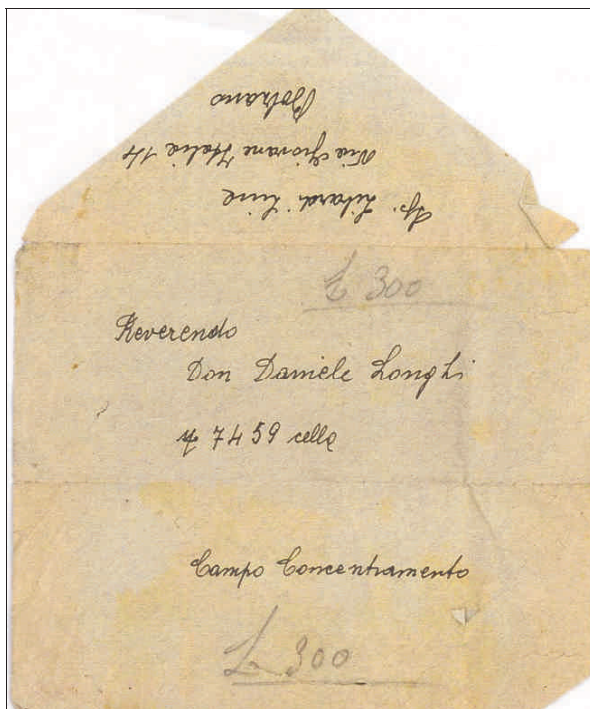 Sp.
Via Giovane Italia 14
Bolzano
£ 300
Reverendo
Don Daniele Longhi
7459 cella
Campo Concentramento
L. 300